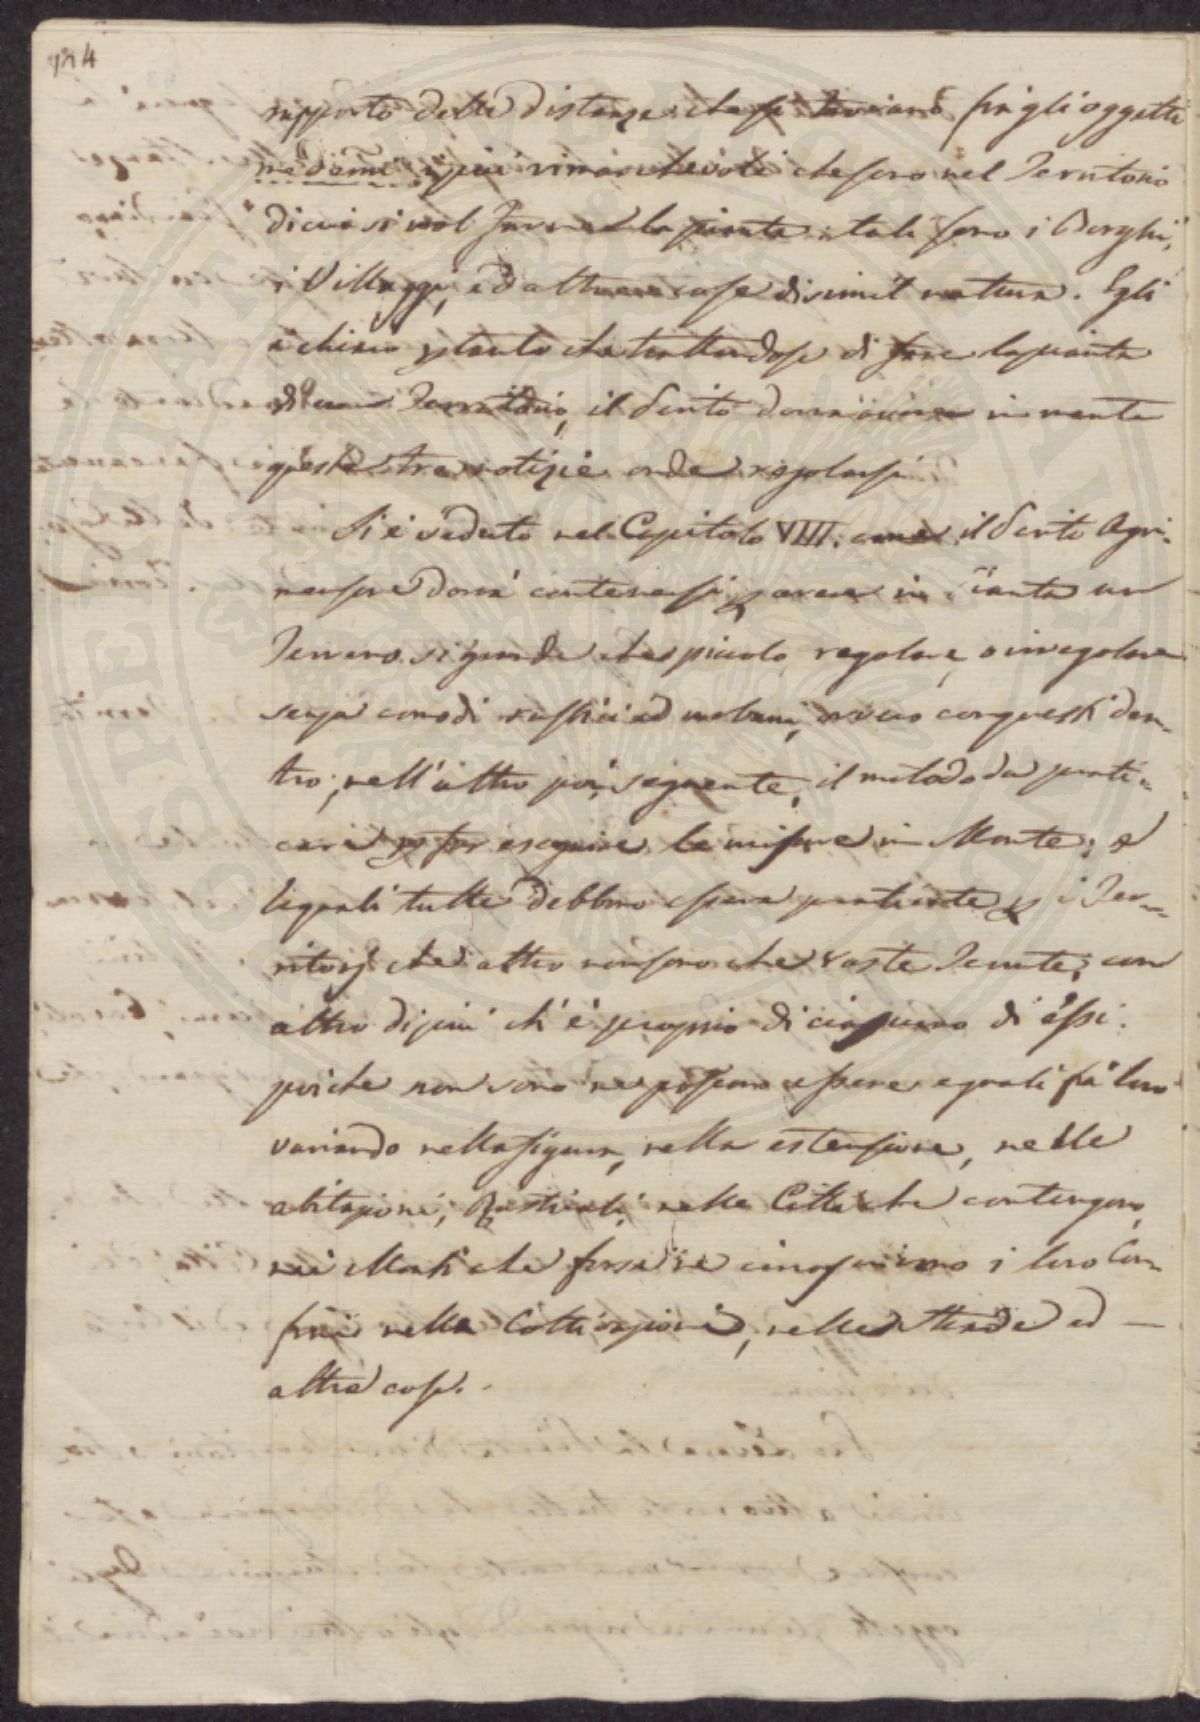 124
rapporto delle distanze che si trovano fra gli oggetti
medemi i più rimarchevoli che sono nel Territorio
di cui si vuol formar la pianta, tali sono i Borghi,
i Villaggi, ed altre cose di simil natura. Egli
è chiaro pertanto che trattandosi di fare la pianta
di un Territorio, il Perito dovrà avere in mente
queste tre notizie onde regolarsi.
Si è veduto nel Capitolo VIII. come il Perito Agri-
mensore dovrà contenersi per avere in Pianta un
Terreno sì grande che piccolo, regolare, o irregolare
senza comodi rustici ed urbani, ovvero con questi den-
tro; nell'altro poi seguente, il metodo da prati-
carsi per far eseguire le misure in Monte; e
le quali tutte debbono essere praticate per i Ter-
ritorj che altro non sono che vaste Tenute; con
altro di più ch'è proprio di ciascuno di essi.
poiche non sono ne possono essere eguali fra loro
variando nella figura, nella estensione, nelle
abitazioni, nelle Città che contengono,
nei Monti che forse ne circoscrivono i loro Con-
fini nella Coltivazione, nelle Strade ed
altre cose.